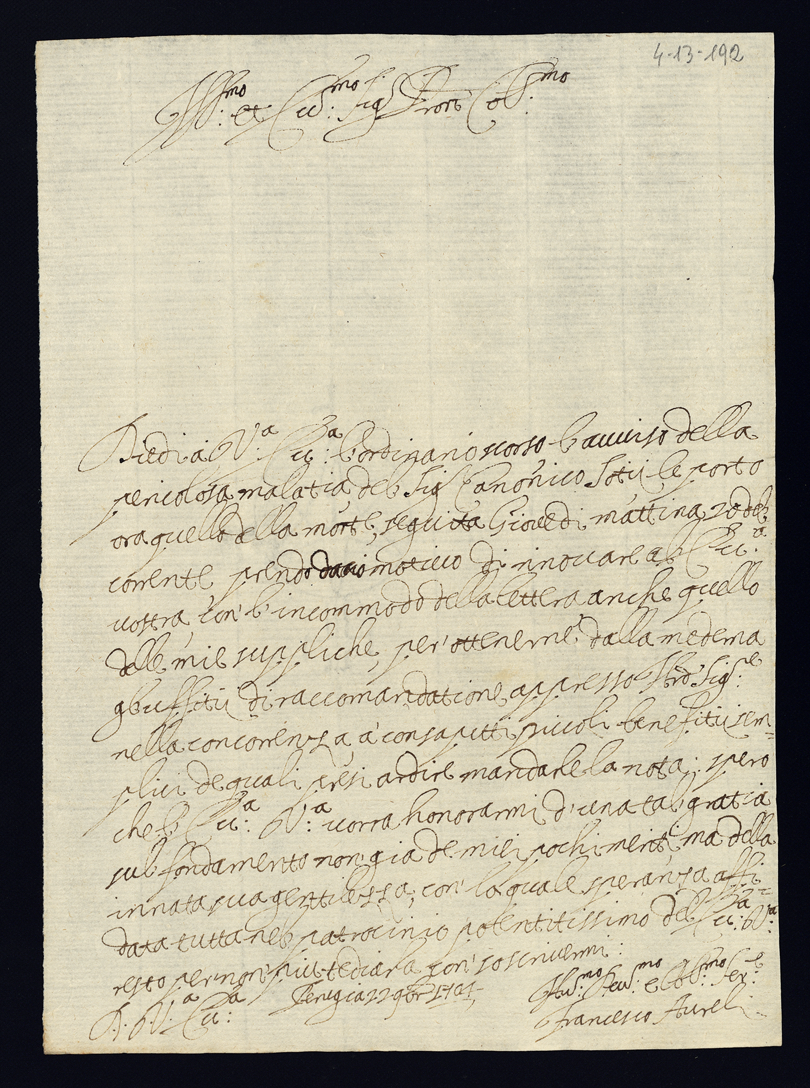 4-13-192
Ill:mo et Ecc:mo Sig: Pron Col:mo
Diedi à V:a Ecc:a l'ordinario scorso l'avviso della
pericolosa malatia del Sig: Canonico Soti le porto
ora quello della morte, seguita Giovedi mattina 20 del
corrente prendo motivo di rinovare all'Ecc:a
vostra con l'incommodo della lettera anche quello
delle mie suppliche, per ottenerne dalla medema
gl'uffitij di raccomandatione appresso Sig:re
nella concorrenza a consaputi piccoli benefitij sem=
plici de quali presi ardire mandarle la nota; spero
che l'Ecc:a V:a vorrà honorarmi d'una tal gratia
sul fondamento non già de miei pochi meriti, ma della
innata sua gentilezza; con la quale speranza affi=
data tutta nel patrocinio potentitissimo dell'Ecc:a V:a
resto per non più tediarla con soscrivermi:
D: V:a Ecc:a Perugia 22 9bre
Hu:mo Dev:mo e Obl:mo Ser:e
Francesco Aureli